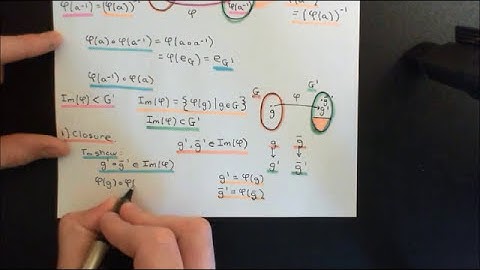 φ(a⁻¹) = (φ(a))⁻¹
φ
= (φ(a))⁻¹
φ(a) ∘ φ(a⁻¹) = φ(a ∘ a⁻¹)
= φ(e_G) = e_G'
φ(a⁻¹) ∘ φ(a)
Im(φ) < G'
Im(φ) = {φ(g) | g ∈ G}
Im(φ) ⊂ G'
G
φ
G'
g
g'
1) Closure
To show:
g' ∘ g̅' ∈ Im(φ)
φ(g) ∘ φ(
g', g̅' ∈ Im(φ)
g g̅
g' g̅'
g' = φ(g)
g̅' = φ(g̅)